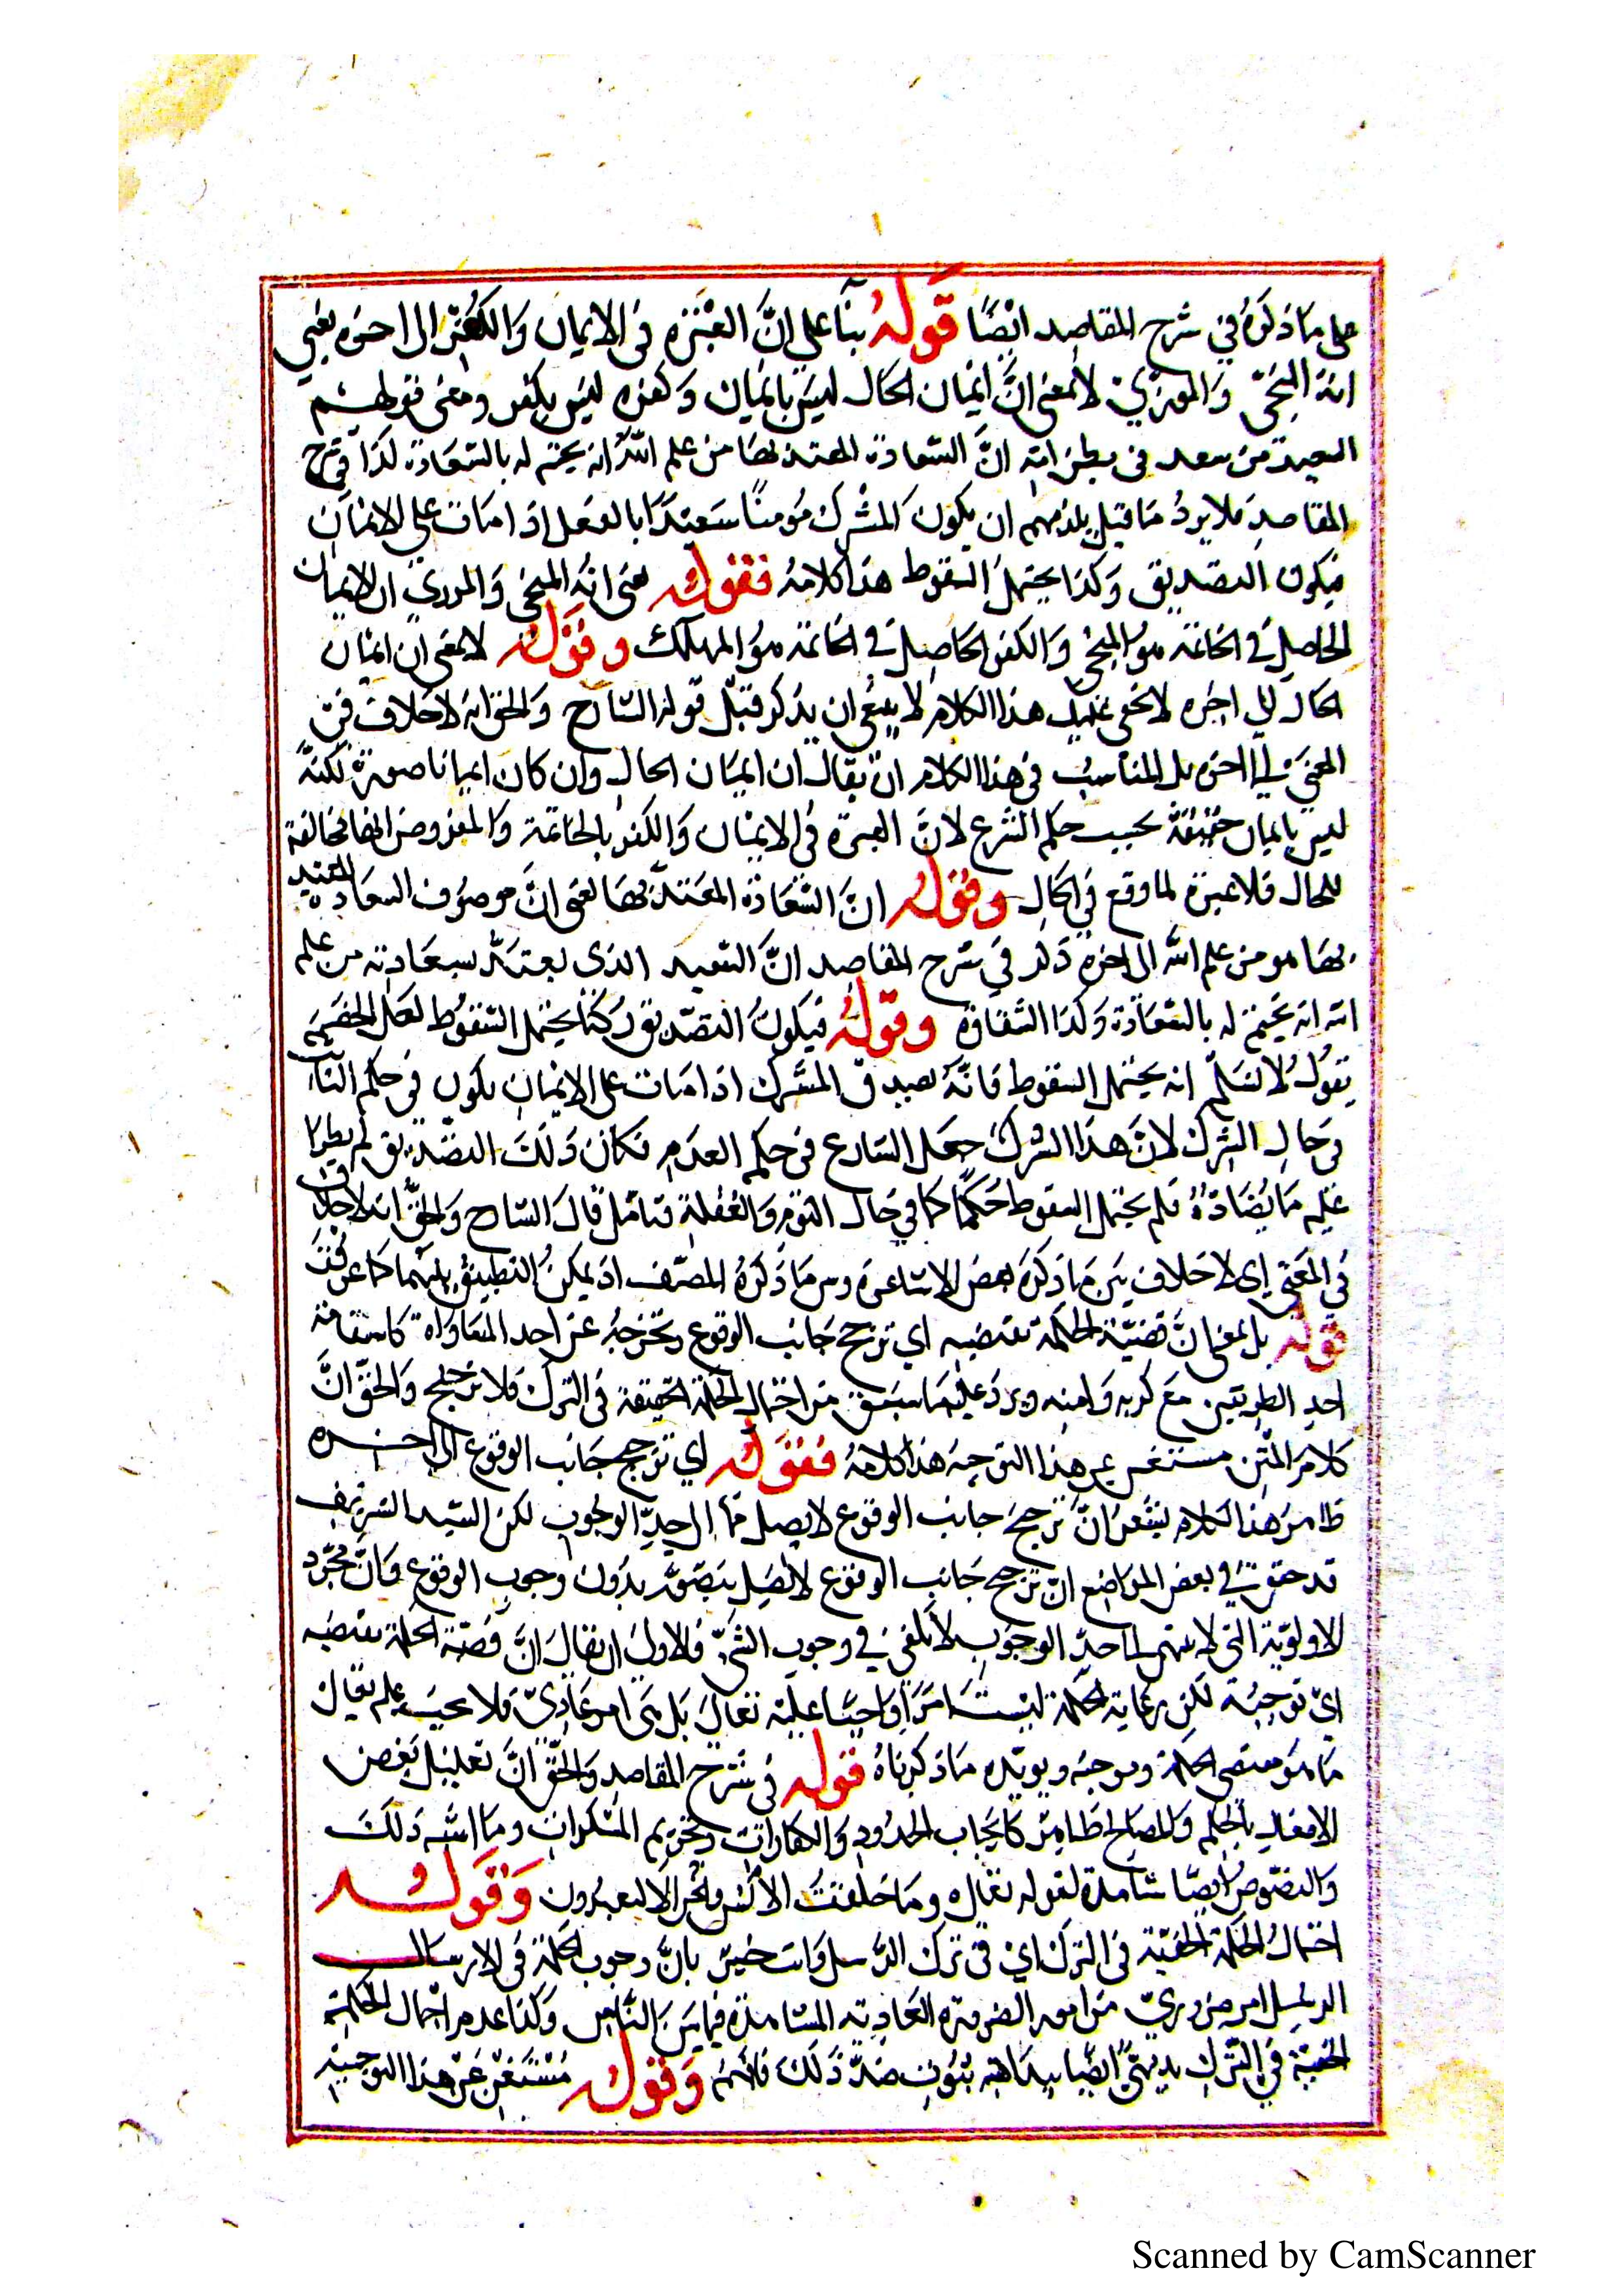 على ما ذكره في شرح المقاصد ايضًا قوله بنآ على انَّ العبرة في الايمان وَالكفر الى اخره يعني
انه المنجى وَالمردي لا بمعنى انَّ ايمان الحال ليسَ بايمان وَكفره ليسَ بكفر ومعنى قولهم
السعيد من سعد في بطن امّه انَّ السّعادة المعتد بها من علم اللّه انه يختم له بالسّعَادة كذا في شرح
المقاصد فلا يردُ ما قيل يلزمهم ان يكونَ المشرك مُومنًا سَعيدًا بالفعل اذا مات على الايمان
فيكون التصديق وَكذا يحتمل السقوط هذا كلامهُ فقوله بمعنى انّهُ المنجى وَالمردي ان الايمان
الحاصل في الخاتمة هو المنجى وَالكفر الحاصل في الخاتمة هوُ المهلك وقوله لا بمعنى ان ايمان
الحال الي اخره لا يخفى عليك هذا الكلام لا ينبغي ان يذكر قبل قوله الشارح وَالحق انه لا خلاف في
المعنى الي اخره بل المناسبُ في هذا الكلام ان يقال ان ايمان الحال وان كان ايمانا صورة لكنّهُ
ليسَ بايمان حقيقة بحسب حكم الشرع لانَّ العبرة في الايمان وَالكفر بالخاتمة وَالمفروض انها مخالفة
للحال فلا عبرة لما وقع في الحال وقوله انَّ السّعَادة المعتدّ بها يعنى انَّ موصُوف السعادة المعتد
بها هو من علم اللّه الى اخره ذكر في شرح المقاصد انَّ السّعيد الذى يعتدّ بسعَادته من علم
اللّه انه يختم له بالسّعَادة وَكذا الشقاوة وقوله فيكونُ التصديق ركنًا يحتمل السّقوط لعَل الخصم
يقولُ لا نسَلّم انه يحتمل السقوط فانَّهُ تصديق المشرك اذا مات على الايمان يكون في حكم الثابت
في حال الشرك لانَّ هذا الشرك جعل الشارع في حكم العدم فكان ذلك التصديق لم يطرا
عليه ما يُضادّهُ فلم يحتمل السقوط حُكمًا كما في حال النوم وَالغفلة فتامّل قال الشارح وَالحقّ انه لا خلاف
في المعنى اى لا خلاف بين ما ذكرَه بعض الاشاعرة وبين ما ذكرهُ المصنّف اذ يمكن التطبيق بينهما كما عرفت
قوله بل بمعنى انَّ قضيّة الحكمة تقتضيه اي ترجح جانب الوقوع وتخرجهُ عن احد المتساواة كاستقامة
احد الطريقين مع كربه وَامنه ويرد عليه ما سبق من احتمال الحكمة الخفيّة في الترك فلا ترجيح وَالحقّ انَّ
كلام المتن مستغن عن هذا التوجيه هذا كلامهُ فقوله اي ترجح جانب الوقوع الى اخره
ظاهر هذا الكلام يشعر انَّ ترجح جانب الوقوع لا يصل الى حدِّ الوجوب لكن السّيد الشريف
قد حقق في بعض المواضع انَّ ترجح جانب الوقوع لا يتصوّر بدون وجوب الوقوع فانَّ مجرّد
الاولويّة التي لا تنتهى الى حدّ الوجوب لا يكفي في وجوب الشئ فالاولى ان يقال انَّ قضيّة الحكمة تقتضيه
ايّ توجبهُ لكن رعاية الحكمة ليست امرًا واجبًا عليه تعالى بل هي امر عاديّ فلا يجبُ عليه تعالى
ما هو مقتضى الحكمة وموجبه ويويّده ما ذكرناهُ قوله في شرح المقاصد وَالحقّ انَّ تعليل بعض
الافعال بالحكم وَالمصالح ظاهر كايجاب الحدود وَالكفارات وتحريم المسكرات وما اشبه ذلك
وَالنصوصُ ايضًا شاهدة لقوله تعالى وما خلقتُ الانس والجن الا ليعبدون وَقوله
احتمالُ الحكمة الخفيّة في الترك اي في ترك الرُسل وَانت خبير بانَّ وجوب الحكمة في الارسال
الرسل امر ضروريّ من امور الضرورة العَاديّة المشاهدة فيما بين النّاس وَكذا عدم احتمال الحكمة
الخفيّة في التّرك بديهيٌّ ايضًا ببداهة ثبوت ضدّ ذلك فافهم وَقوله مُستغن عن هذا التوجيه
Scanned by CamScanner